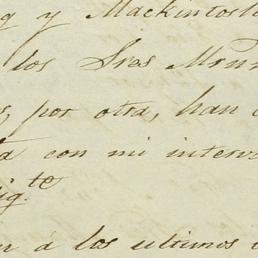 y Mackintosh
los Sres
por otra, han
con mi interv
ig.te
á los ultimos